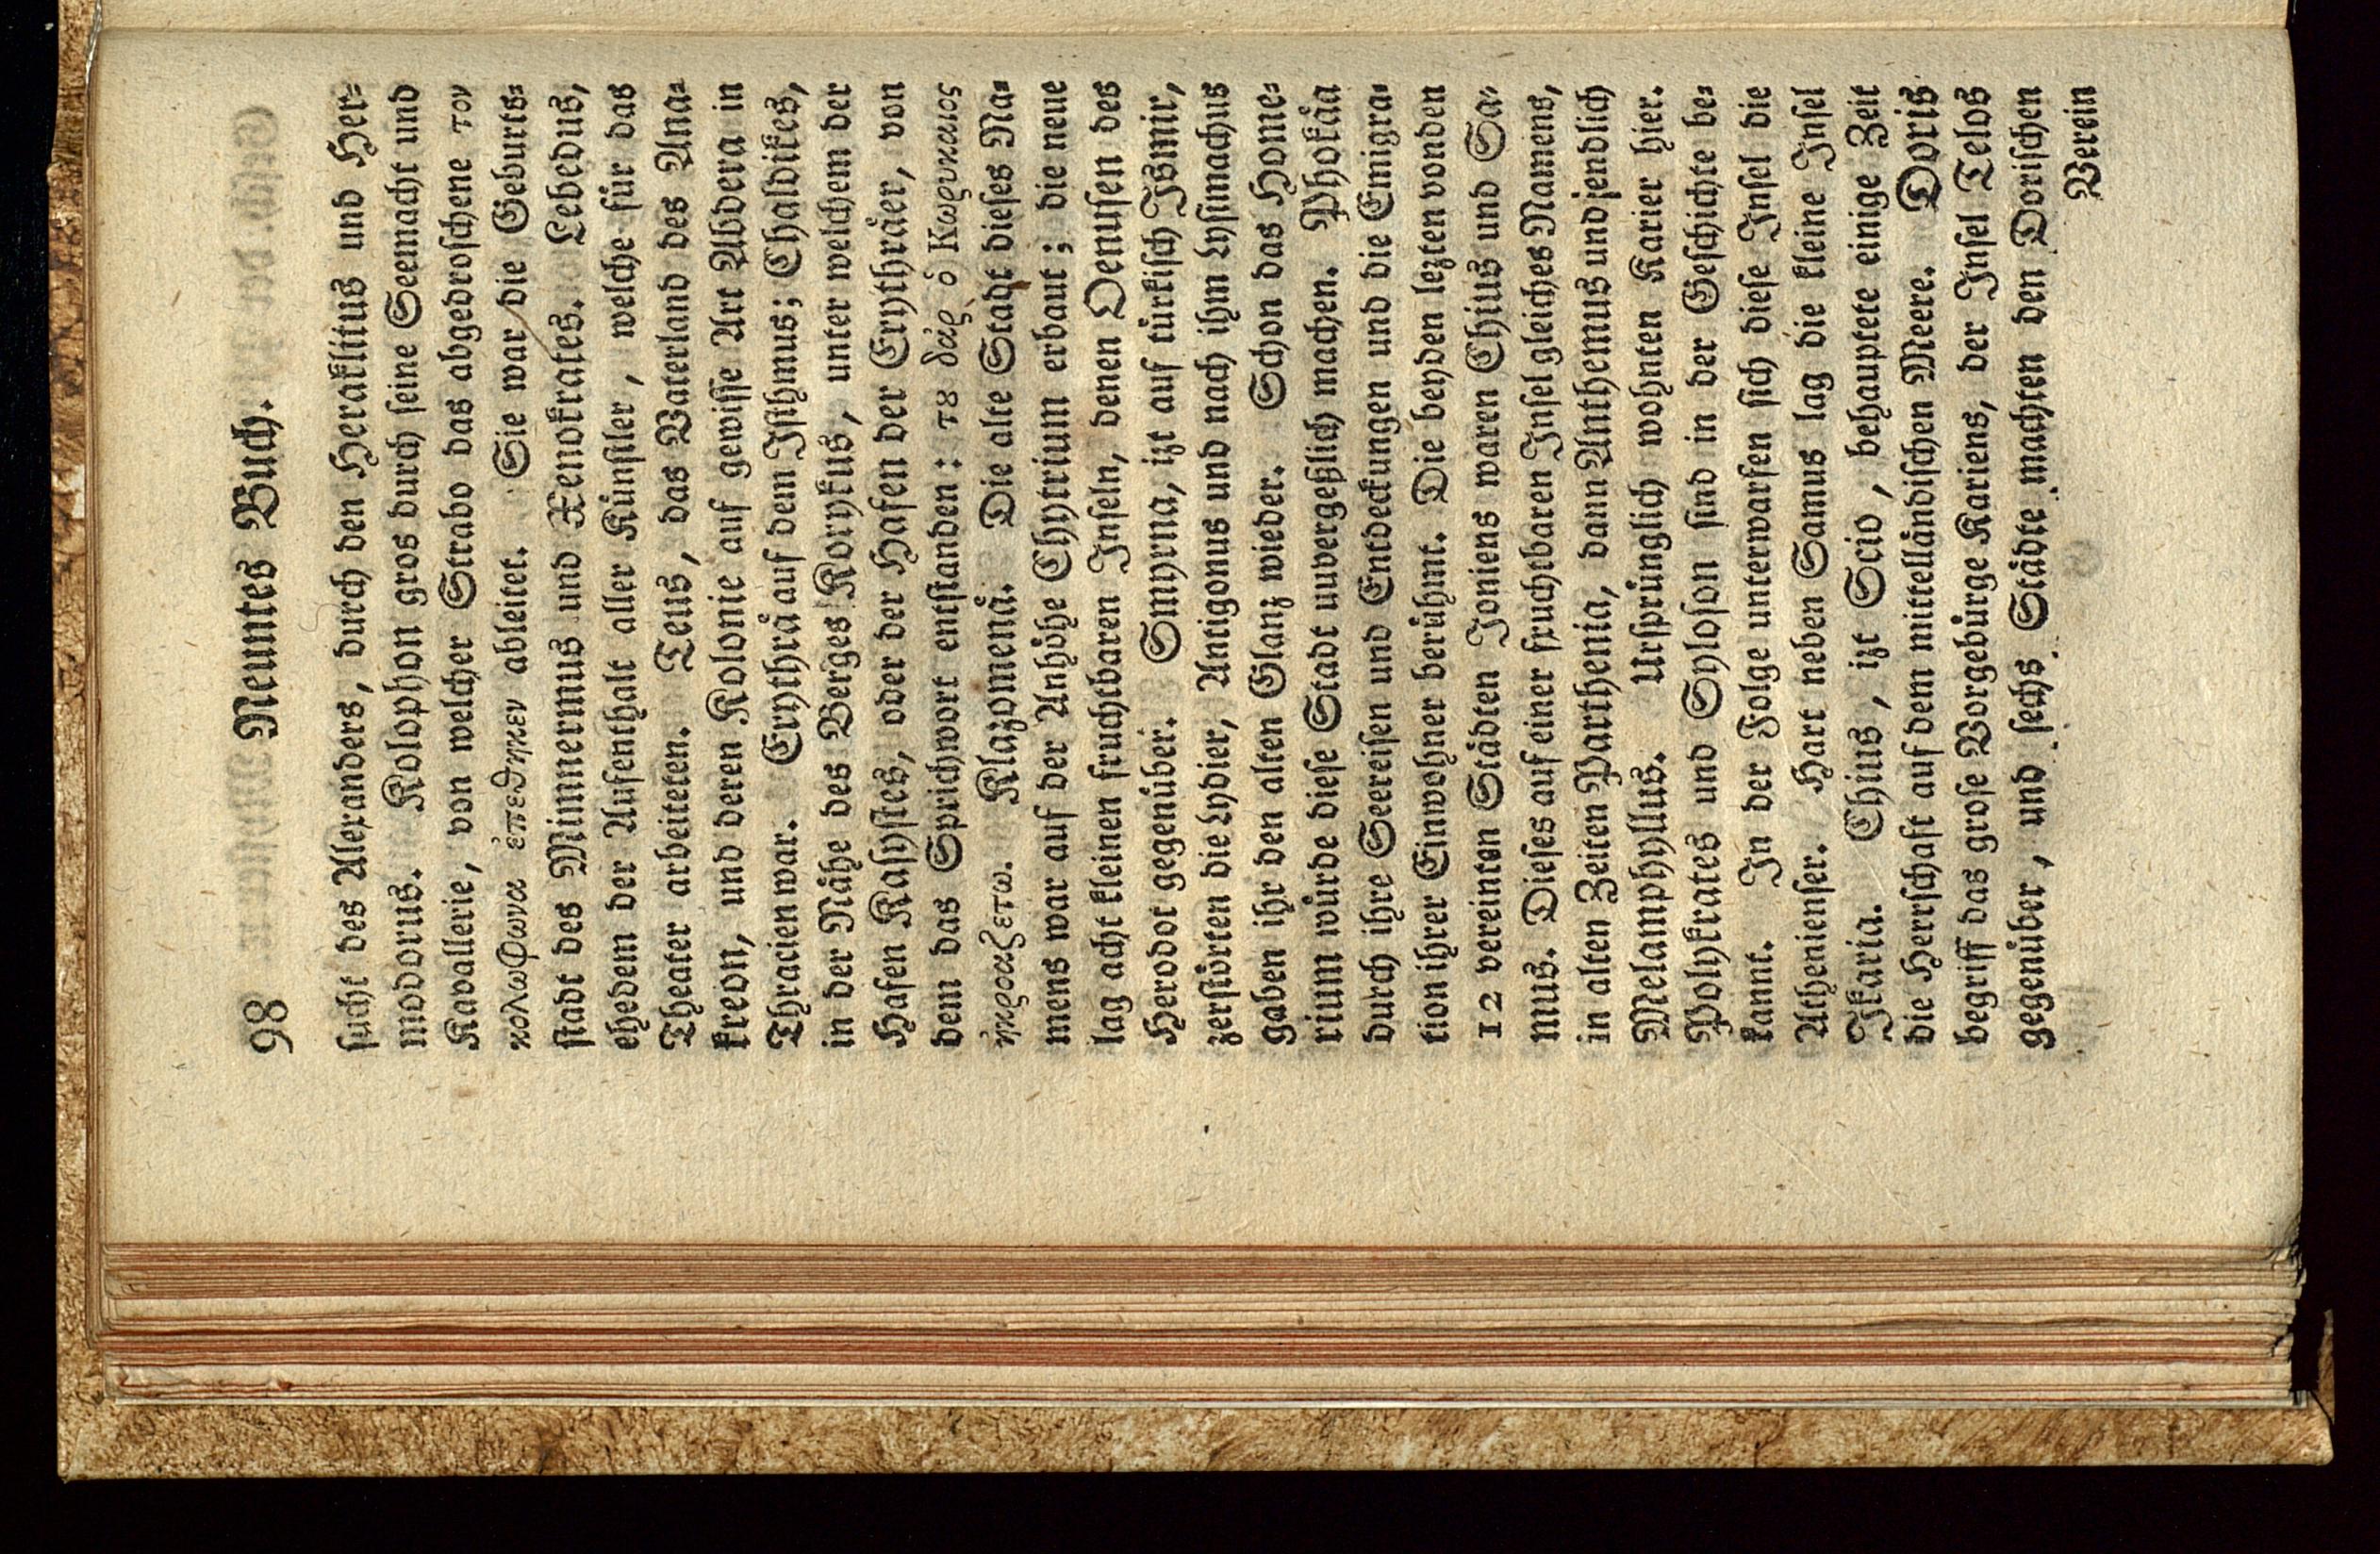 98 Neuntes Buch.
sucht des Alexanders, durch den Heraklitus und Her-
modorus. Kolophon gros durch seine Seemacht und
Kavallerie, von welcher Strabo das abgedroschene τον
κολωφωνα ἐπεθηκεν ableitet. Sie war die Geburts-
stadt des Minnermus und Xenokrates. Lebedus,
ehedem der Aufenthalt aller Künstler, welche für das
Theater arbeiteten. Teus, das Vaterland des Ana-
kreon, und deren Kolonie auf gewisse Art Abdera in
Thracien war. Erythrä auf dem Isthmus; Chaldikes,
in der Nähe des Berges Korykus, unter welchem der
Hafen Kasystes, oder der Hafen der Erythräer, von
dem das Sprichwort entstanden: τȣ δάρ ὁ Κωρυκαιος
ἠκροαζετω. Klazomenä. Die alte Stadt dieses Na-
mens war auf der Anhöhe Chytrium erbaut; die neue
lag acht kleinen fruchtbaren Inseln, denen Oenusen des
Herodot gegenüber. Smyrna, izt auf türkisch Ismir,
zerstörten die Lydier, Antigonus und nach ihm Lysimachus
gaben ihr den alten Glanz wieder. Schon das Home-
rium würde diese Stadt unvergeßlich machen. Phokäa
durch ihre Seereisen und Entdeckungen und die Emigra-
tion ihrer Einwohner berühmt. Die beyden lezten von den
12 vereinten Städten Joniens waren Chius und Sa-
mus. Dieses auf einer fruchtbaren Insel gleiches Namens,
in alten Zeiten Parthenia, dann Anthemus und jendlich
Melamphyllus. Ursprünglich wohnten Karier hier.
Polykrates und Syloson sind in der Geschichte be-
kannt. In der Folge unterwarfen sich diese Insel die
Athenienser. Hart neben Samus lag die kleine Insel
Ikaria. Chius, izt Scio, behauptete einige Zeit
die Herrschaft auf dem mittelländischen Meere. Doris
begriff das grose Vorgebürge Kariens, der Insel Telos
gegenüber, und sechs Städte machten den Dorischen
Verein